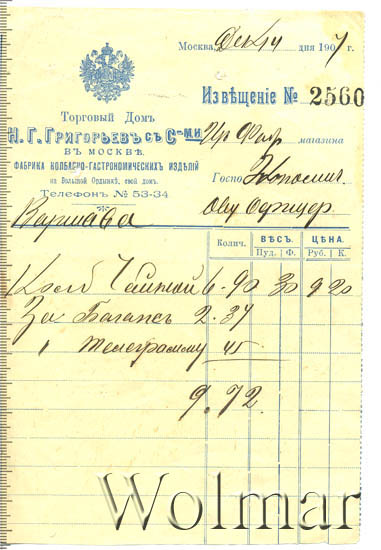 Москва, Дек 14 дня 1907 г.
Извѣщеніе № 2560
Торговый Домъ
Н. Г. Григорьевъ съ С-ми
въ Москвѣ.
Фабрика колбасно-гастрономическихъ издѣлій
на Большой Ордынкѣ, свой домъ.
Телефонъ № 53-34
магазина
Госпо
Варшава Офицер
Колич. ВѢСЪ. ЦѢНА.
Пуд. Ф. Руб. К.
Колб Чайной 6-90 30 9 20
За Багажъ 2.37
" телеграмму 45
9.72
Wolmar